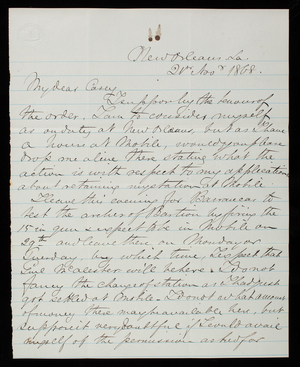 New Orleans La.
21st Novr 1868.
My dear Casey
I suppose by the tenor of
the order, I am to consider myself
as on duty at New Orleans, but as I have
a house at Mobile, would you please
drop me a line there stating what the
action is with respect to my application
about retaining my station at Mobile
I leave this evening for Barrancas to
test the anchor of Bastion by firing the
15 in gun & expect to be in Mobile on
29th and leave then on Monday or
Tuesday, by which time I expect that
Genl McAlester will be here. I do not
fancy the change of station as I had just
got settled at Mobile. I do not know what amount
of money there may be available here, but
suppose it very doubtful if I would avail
myself of the permission asked for